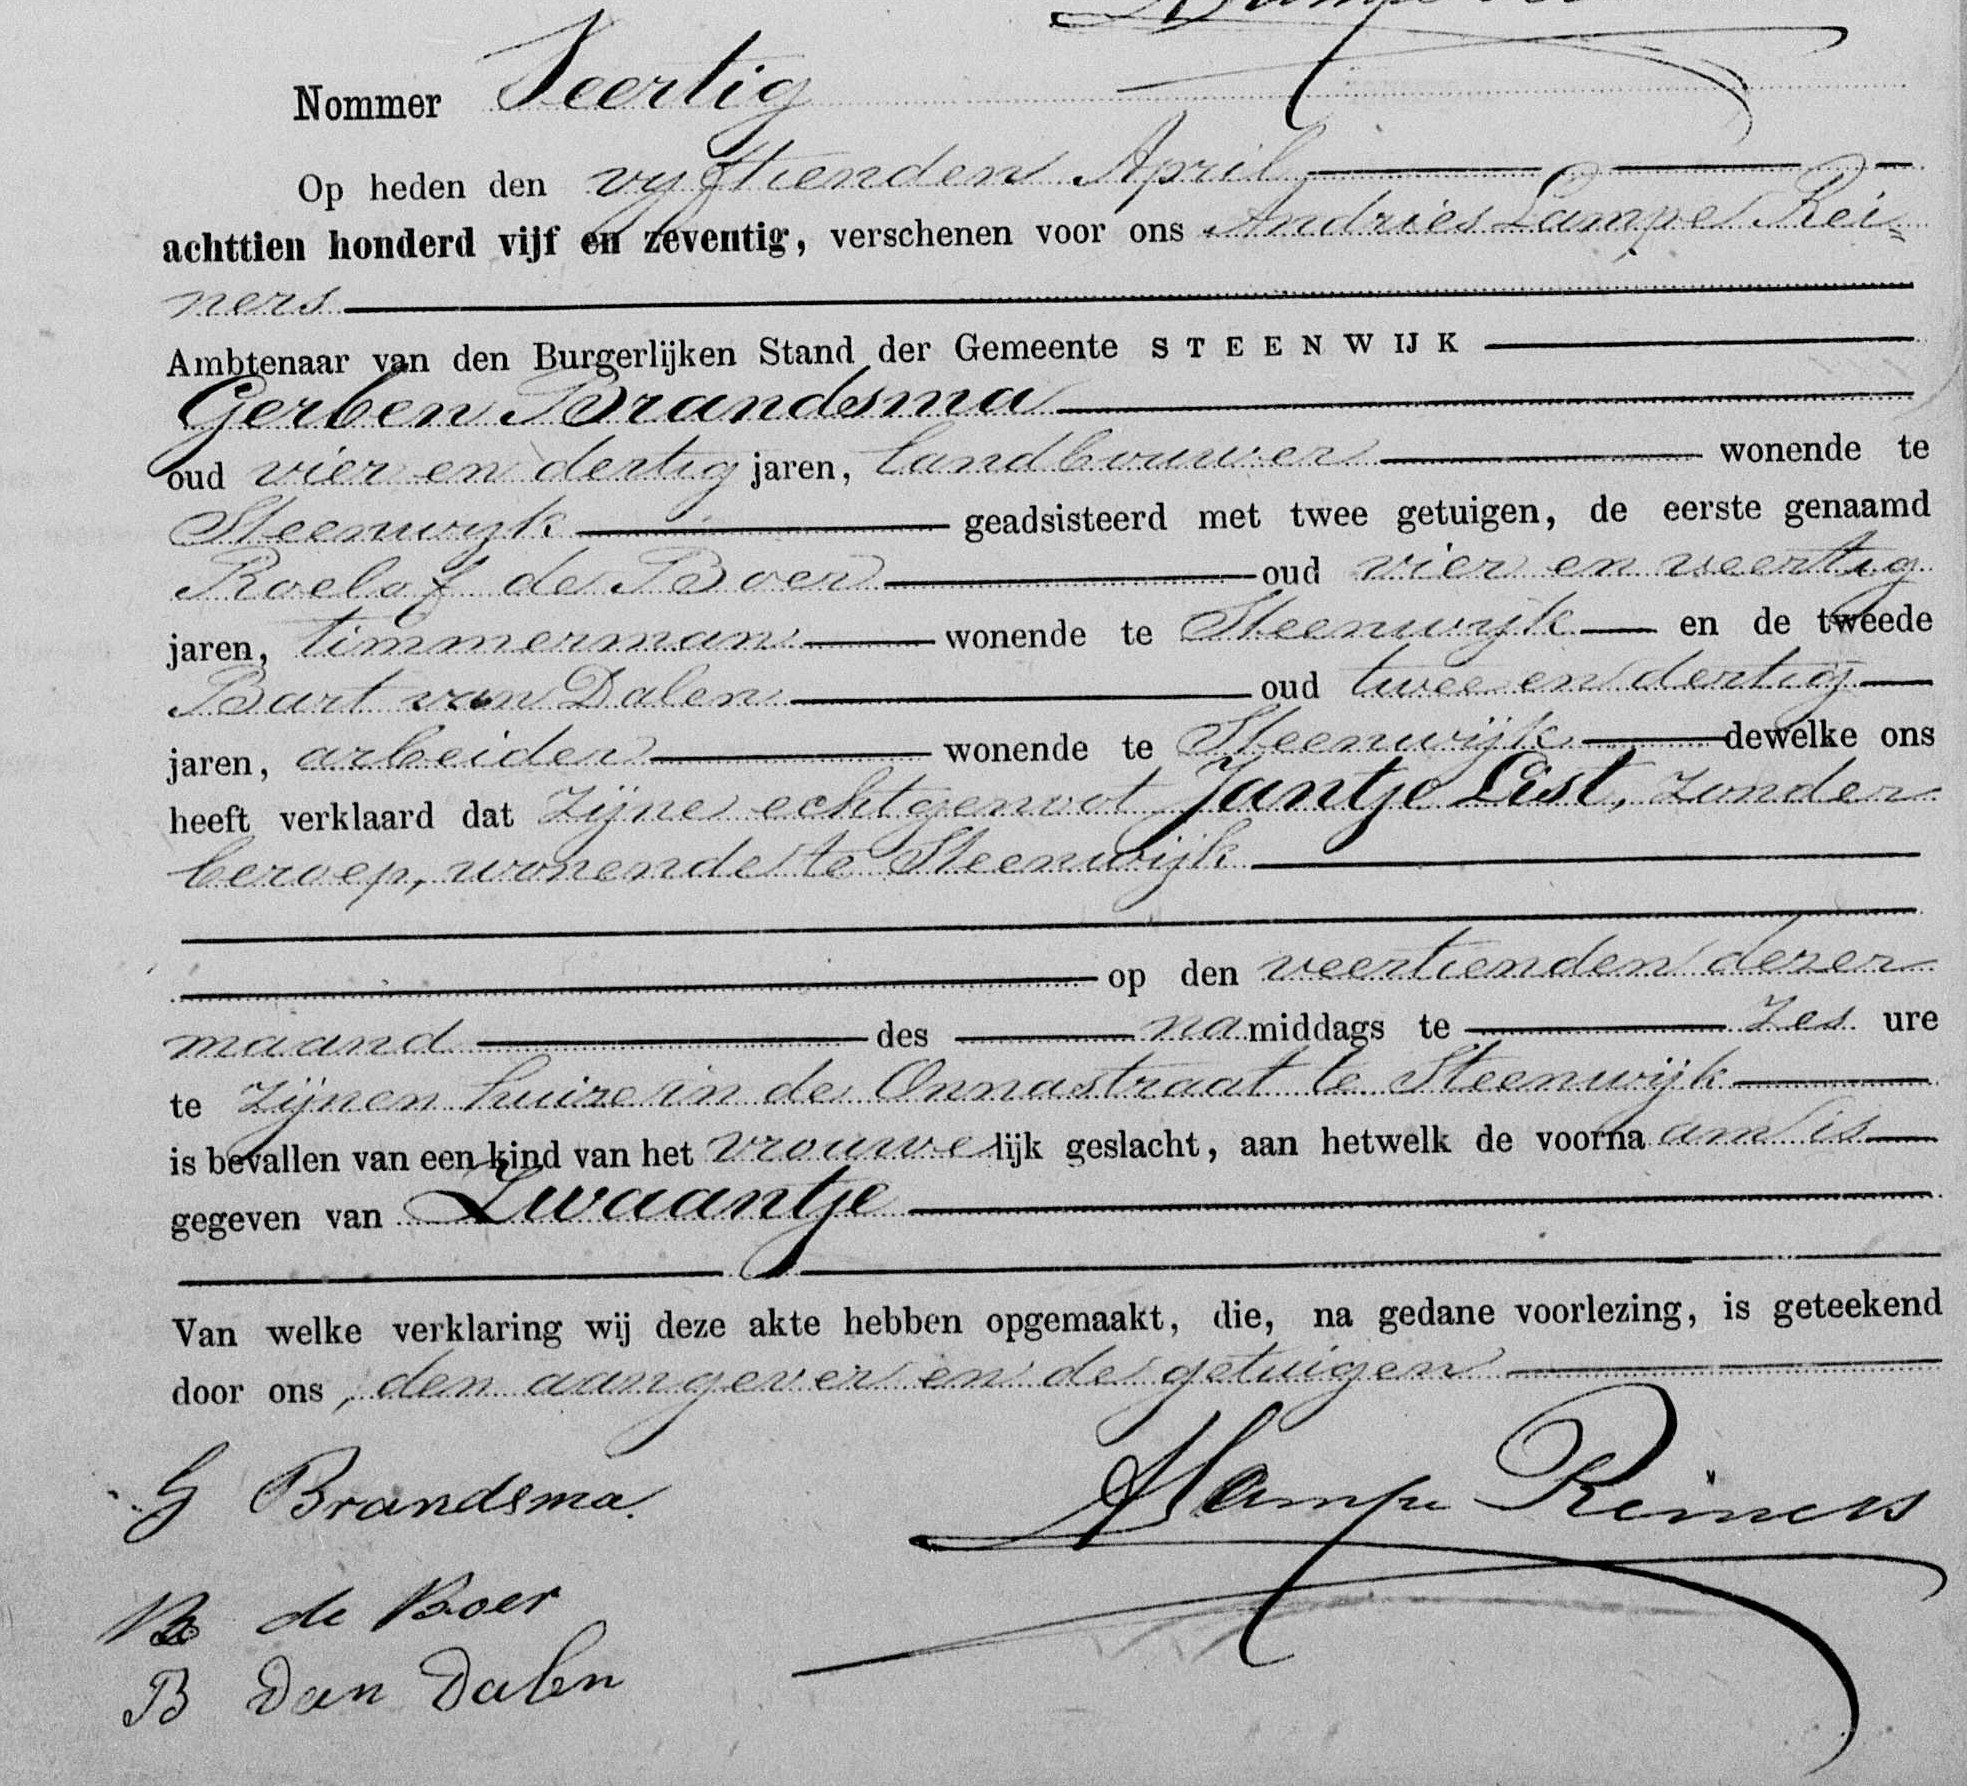 Nommer Veertig
Op heden den vyftienden April
achttien honderd vijf en zeventig, verschenen voor ons Andries Lampe Rei=
ners
Ambtenaar van den Burgerlijken Stand der Gemeente STEENWIJK
Gerben Brandsma
oud vier en dertig jaren, landbouwer wonende te
Steenwyk geadsisteerd met twee getuigen, de eerste genaamd
Roelof de Boer oud vier en veertig
jaren, timmerman wonende te Steenwyk en de tweede
Bart van Dalen oud twee en dertig
jaren, arbeider wonende te Steenwijk dewelke ons
heeft verklaard dat zijne echtgenoot Jantje List, zonder
beroep, wonende te Steenwijk
op den veertienden dezer
maand des namiddags te zes ure
te zijnen huize in de Onnastraat te Steenwijk
is bevallen van een kind van het vrouwelijk geslacht, aan hetwelk de voornaam is
gegeven van Zwaantje
Van welke verklaring wij deze akte hebben opgemaakt, die, na gedane voorlezing, is geteekend
door ons, den aangever en de getuigen
G Brandsma.
ALampe Reiners
R de Boer
B van Dalen